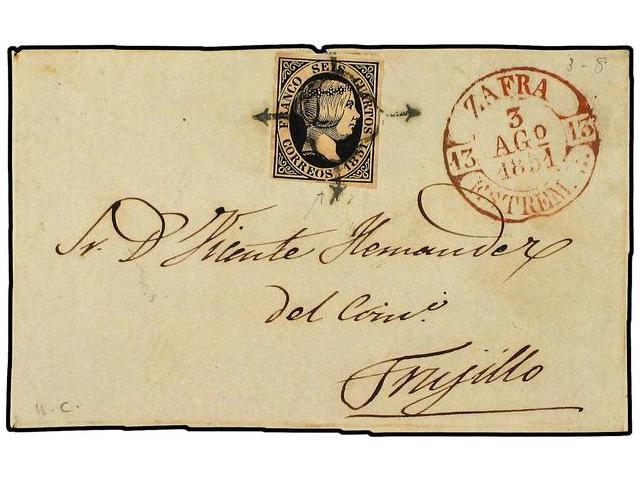 FRANCO SEIS CUARTOS
CORREOS 1851
3-8
ZAFRA
3
AGO
1851
13 13
ESTREM.
Sr. D. Vicente Hernandez
del Come.
Trujillo
n.c.